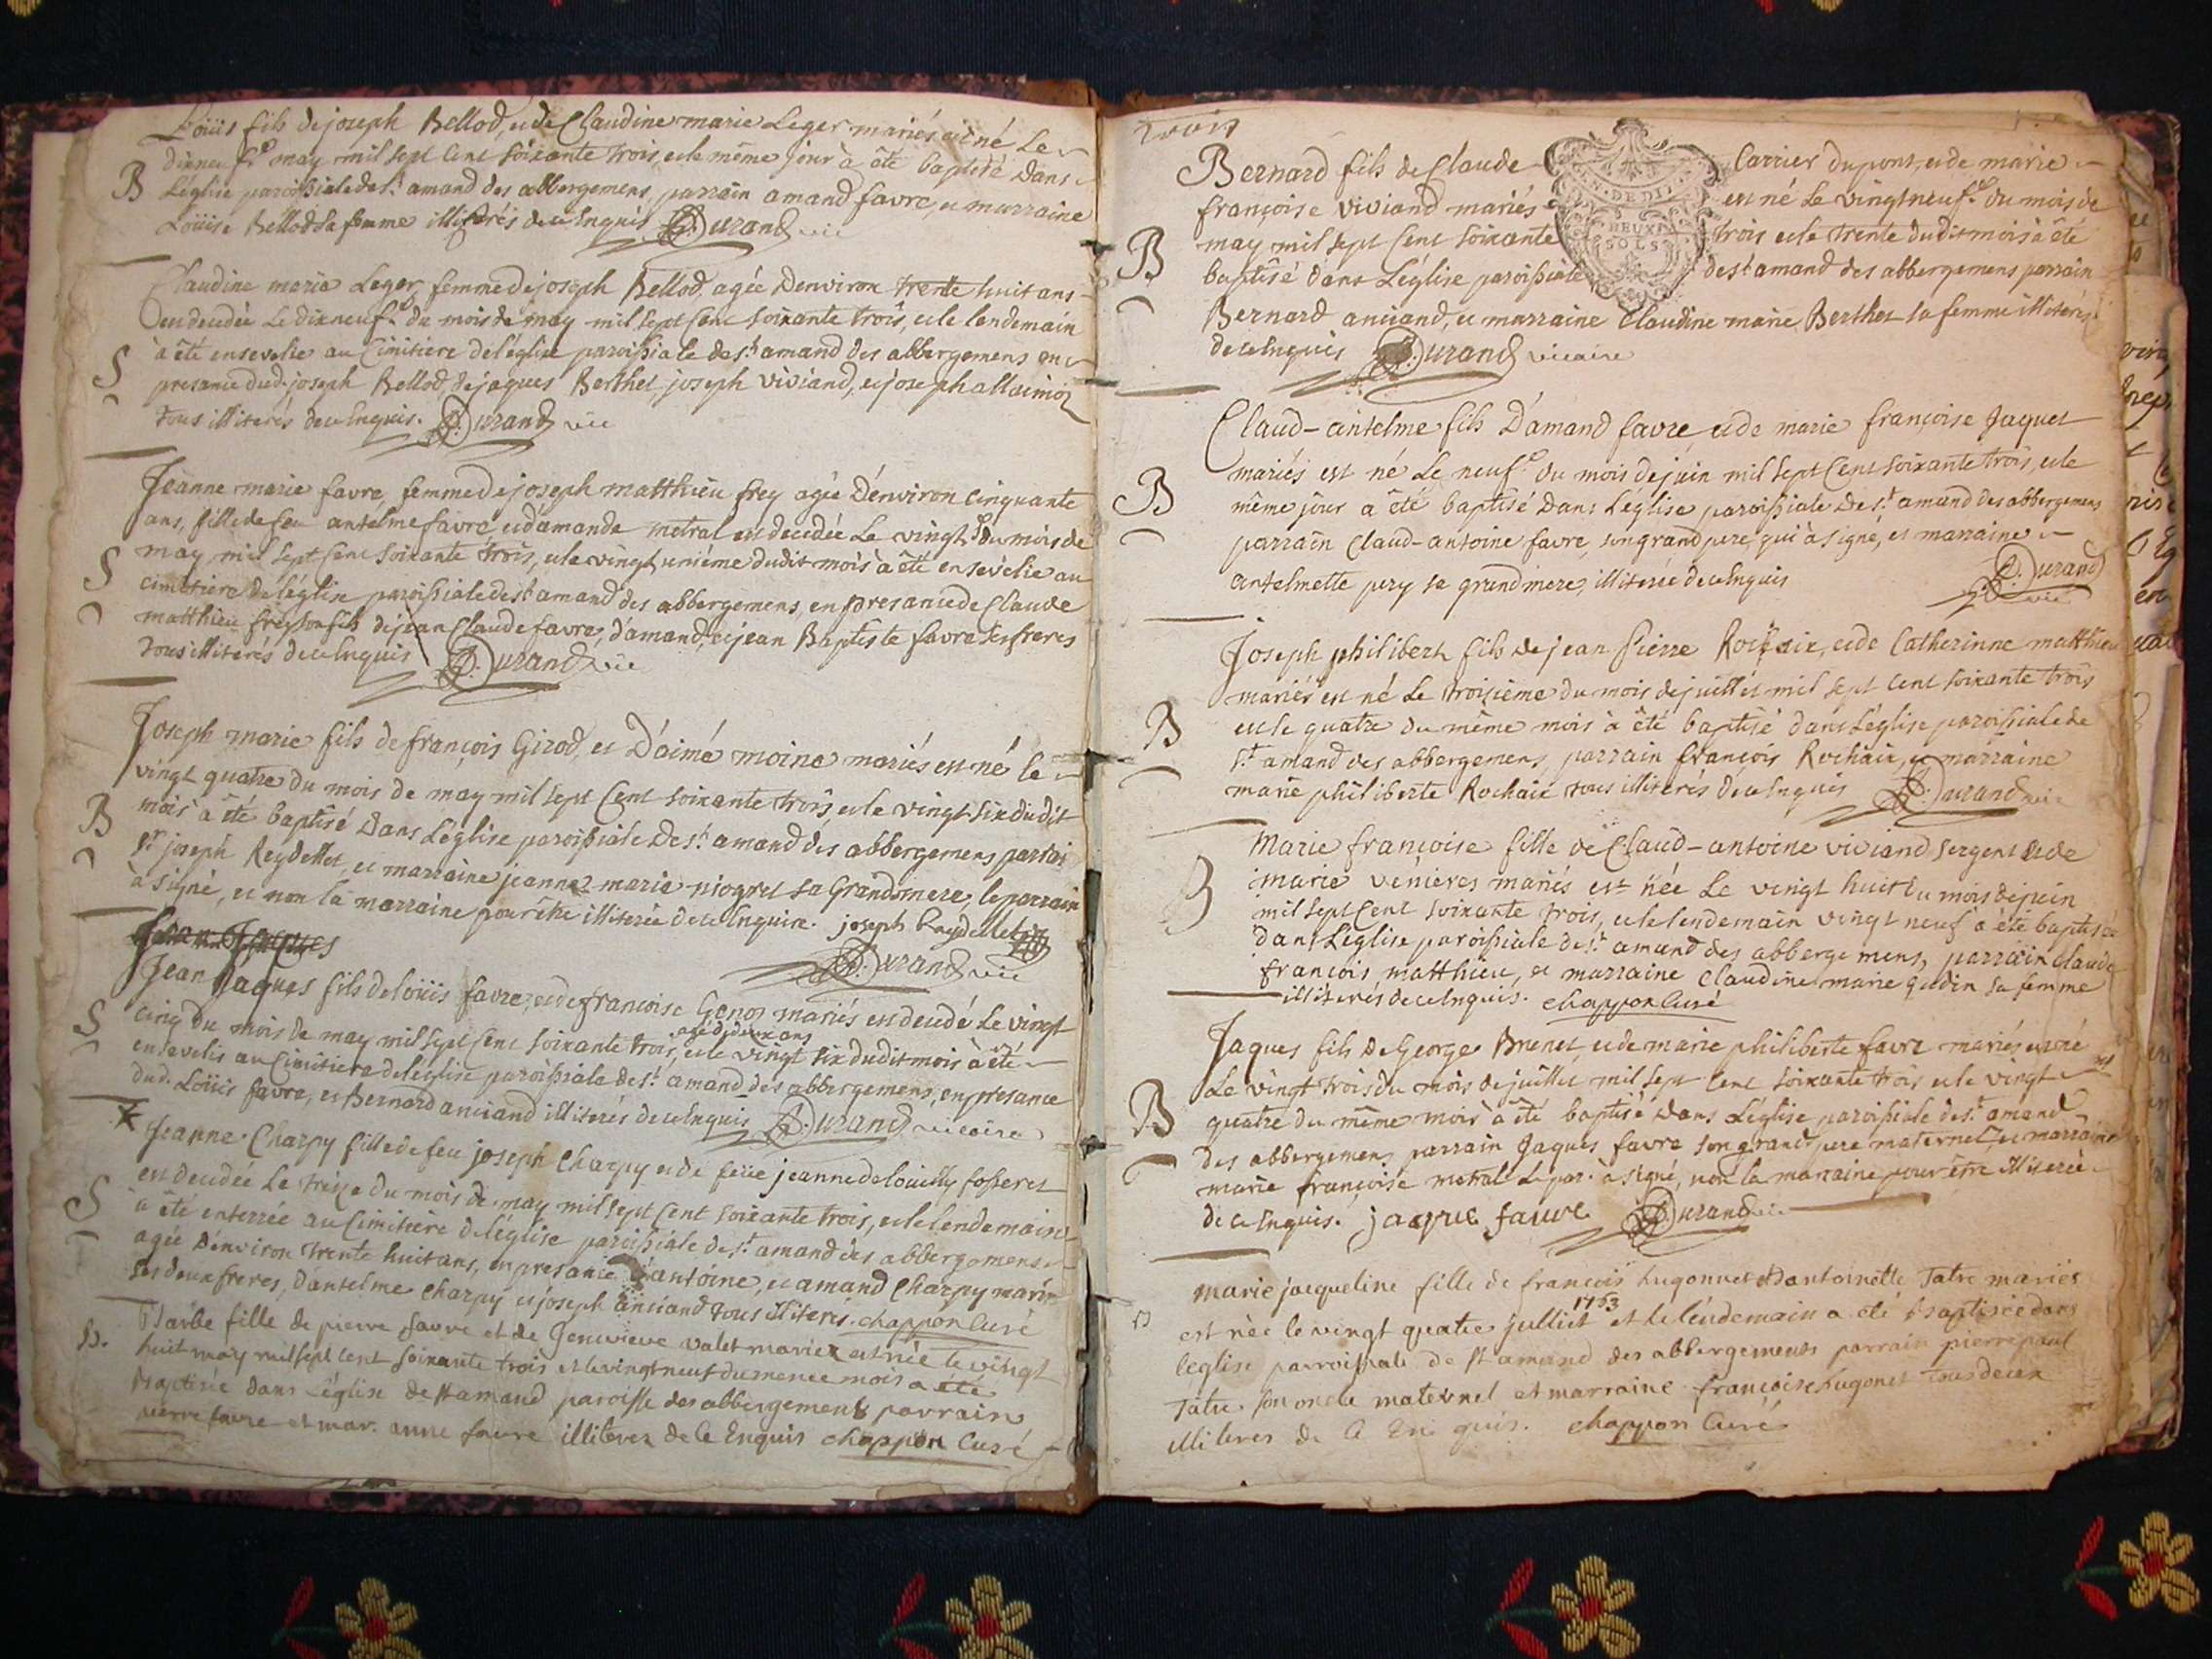 Loüis fils de joseph Bellod, et de Claudine marie Leger mariés est né Le
dixneuf.e may mil sept Cent soixante trois, et le même jour à êté baptisé Dans
B
L'église paroissiale de s.t amand des abbergemens, parrain amand favre, et marraine
Loüise Bellod sa femme illiterés de ce Enquis D: Durand vic
Claudine maria Leger, femme de joseph Bellod, agée D'environ trente huit ans
est decedée Le dixneuf.e du mois de may mil sept Cent soixante trois, et le lendemain
à êté ensevelie au Cimitiere de l'église paroissiale de s.t amand des abbergemens en
S
presance dud. joseph Bellod, de jaques Berthet, joseph viviand, et joseph
tous illiterés de ce Enquis. D: Durand vic
Jeanne marie favre, femme de joseph matthieu frey agée D'environ Cinquante
ans, fille de feu antelme favre et d'amande metral est decedée Le vingt.e du mois de
may mil sept Cent soixante trois, et le vingt unième dudit mois à êté ensevelie au
S
cimitiere de l'église paroissiale de s.t amand des abbergemens, en presance de Claude
matthieu frey son fils de jean Claude favre, d'amand, et jean Baptiste favre ses freres
tous illiterés de ce Enquis D: Durand vic
Joseph marie fils de françois Girod, et D'aimé moine mariés est né le
vingt quatre du mois de may mil sept Cent soixante trois, et le vingt six dudit
B
mois à êté baptisé Dans L'église paroissiale De s.t amand des abbergemens parrai
s.r joseph Reydellet, et marraine jeanne marie niogret sa Grandmere, le parrain
à signé, et non la marraine pour être illiterée de ce Enquise. joseph Reydellet
D: Durand vic
Jean Jacques
Jean Jaques fils de loüis favre, et de françoise Genos mariés est decedé Le vingt
cinq du mois de may mil sept Cent soixante trois, et le vingt six dudit mois à êté
agé de deux ans
S
ensevelis au Cimitiere de l'église paroissiale de s.t amand des abbergemens, en presance
dud. Loüis favre, et Bernard anciand illiterés de ce Enquis D: Durand vicaire
Jeanne Charpy fille de feu joseph Charpy et de feüe jeanne de loüilly fosseret
est decedée Le treize du mois de may mil sept Cent soixante trois, et le lendemain
S
à êté enterrée au Cimitiere de l'église paroissiale de s.t amand des abbergemens
agée D'environ trente huit ans, en presance d'antoine, et amand Charpy marin
ses deux freres, d'antelme Charpy et joseph anciand tous illiterés. chappon Curé
Barbe fille de pierre favre et de Genevieve valet mariez est née le vingt
B.
huit may mil sept cent soixante trois et le vingt neuf du meme mois a été
Baptisée dans L'église de St amand paroisse des abbergements parrain
pierre favre et mar. anne favre illiterez de ce Enquis chappon Curé
trois
Bernard fils de Claude Carrier dupont, et de marie
françoise viviand mariés est né Le vingtneuf.e du mois de
GEN. DE DIJ
DEUX
SOLS
may mil sept Cent soixante trois et le trente dudit mois à êté
B
baptisé dans L'église paroissiale de s.t amand des abbergemens parrain
Bernard anciand, et marraine Claudine marie Berthet sa femme illiterés
de ce Enquis D: Durand vicaire
Claud-antelme fils D'amand favre et de marie françoise Jaquet
mariés est né Le neuf.e du mois de juin mil sept Cent soixante trois, et le
B
même jour a êté baptisé Dans L'église paroissiale De s.t amand des abbergemens
parrain Claud-antoine favre, son grand pere, qui à signé, et marraine
antelmette pery sa grandmere, illiterée de ce Enquis
D: Durand
vic
Joseph philibert fils de jean Pierre Rochaix, et de Catherinne matthieu
mariés est né Le troisième du mois de juillet mil sept Cent soixante trois
B
et le quatre du même mois à êté baptisé dans L'église paroissiale de
s.t amand des abbergemens, parrain françois Rochaix, et marraine
marie philiberte Rochaix tous illiterés de ce Enquis D: Durand vic
Marie françoise fille de Claud-antoine viviand sergent et de
marie venieres mariés est née Le vingt huit du mois de juin
B
mil sept Cent soixante trois, et le lendemain vingt neuf a êté baptisée
dans L'eglise paroissiale de s.t amand des abbergemens, parrain Claude
françois matthieu, et marraine Claudine marie gudin sa femme
illiterés de ce Enquis. chappon Curé
Jaques fils De George Brunet, et de marie philiberte favre mariés est né
Le vingt trois du mois de juillet mil sept Cent soixante trois et le vingt
B
quatre du même mois à êté baptisé Dans L'église paroissiale de s.t amand
des abbergemens parrain Jaques favre son grand pere maternel, et marraine
marie françoise metral Le par. à signé, non la marraine pour être illiterée
de ce Enquis. jaque favre D: Durand vic
marie jacqueline fille de francois hugonnet et d'antoinette Tatre mariés
est née le vingt quatre julliet 1763 et le lendemain a eté Baptisée dans
B
leglise parroissiale de st amand des abbergements parrain pierre paul
Tatre son oncle maternel et marraine françoise hugonet tous deux
illiteres de Ce Enquis. chappon Curé